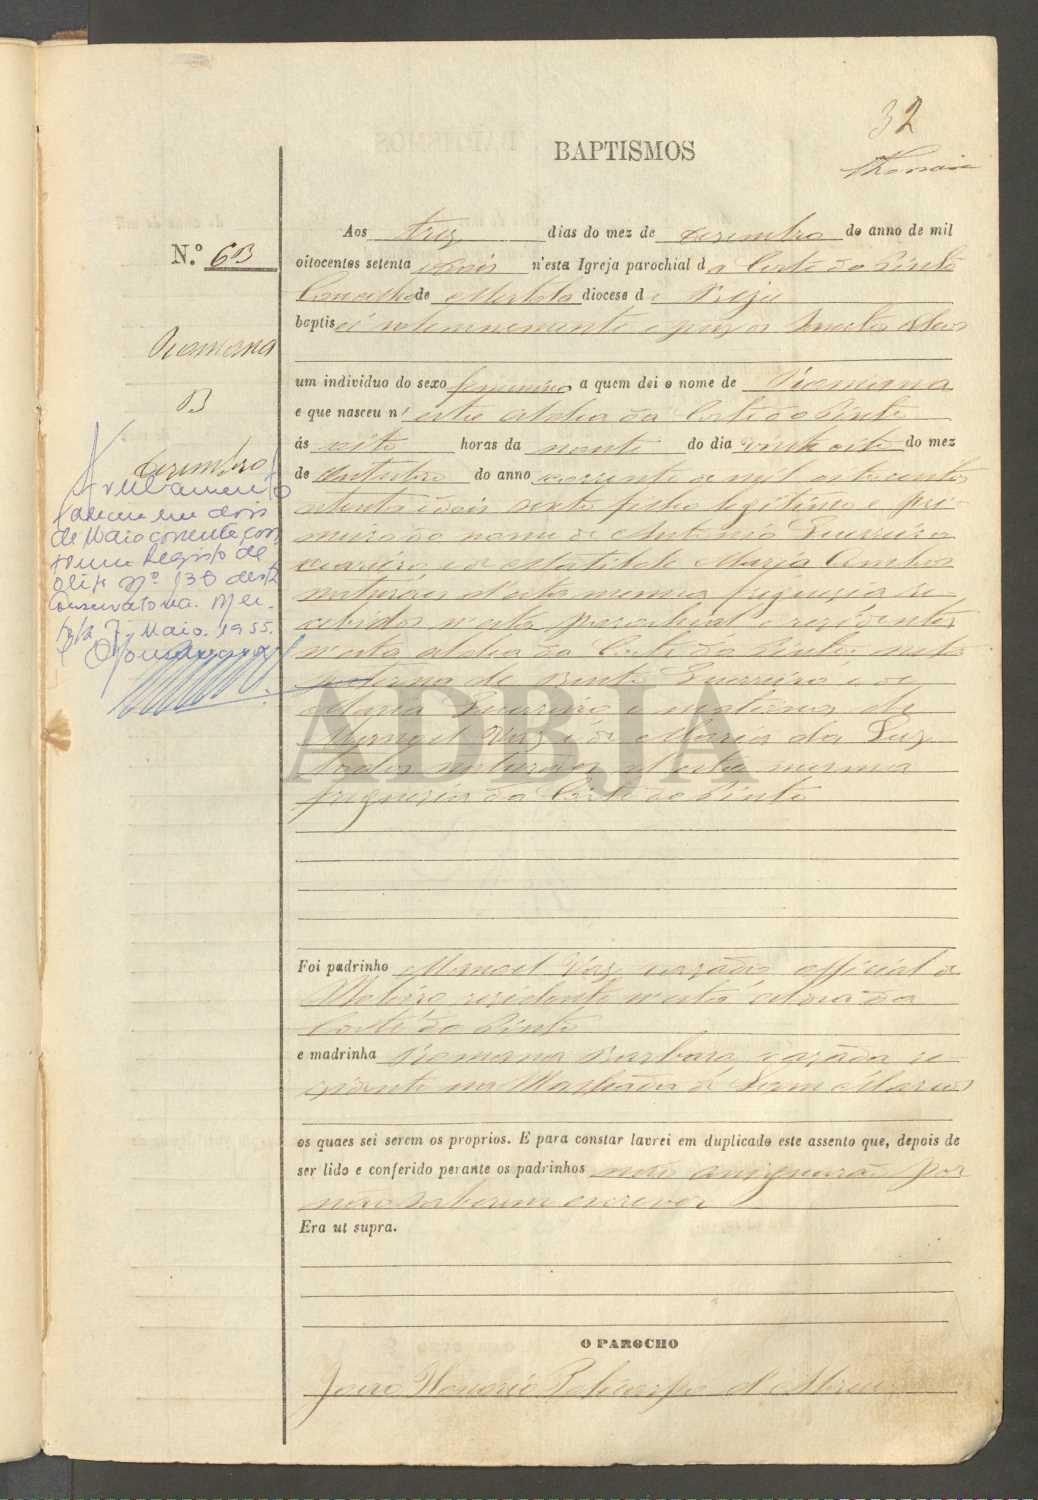 32
BAPTISMOS
N.º 63
Romana
B
Dezembro
Averbamento
Faleceu em dois
de Maio corrente con
forme Registo de
obito Nº 138 desta
Conservatoria. Mer-
tola 7, Maio. 1955.
Aos trez dias do mez de Dezembro do anno de mil
oitocentos setenta e dois n'esta Igreja parochial da Corte do Pinto
Concelho de Mertola diocese de Beja
baptisei solemnemente e puz os Santos Oleos
um individuo do sexo femenino a quem dei o nome de Romana
e que nasceu n'esta aldeia da Corte do Pinto
ás oito horas da noute do dia vinte oito do mez
de Outubro do anno corrente de mil oito centos
setenta e dois filha legitima e pri-
meira do nome de Antonio Guerreiro
e de Matilde Maria
naturaes d'esta mesma freguezia re-
cebidos n'esta parochial e rezidentes
n'esta aldeia da Corte do Pinto neta
paterna de Bento Guerreiro e de
Maria Guerreiro e materna de
Manoel Vaz e de Maria da Luz
todos naturaes d'esta mesma
freguezia da Corte do Pinto
ADBJA
Foi padrinho Manoel Vaz cazado official de
rezidente n'esta aldeia da
Corte do Pinto
e madrinha Romana Barbara, cazada re-
zidente na de Sam Marcos
os quaes sei serem os proprios. E para constar lavrei em duplicado este assento que, depois de
ser lido e conferido perante os padrinhos não assignarão por
não saberem escrever
Era ut supra.
O PAROCHO
João Honorio Policarpo d'Abreu